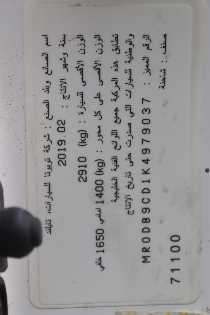 اسم الصانع وبلد الصنع : شركة تويوتا للسيارات، تايلاند
سنة وشهر الانتاج : 2019 02
الوزن الأقصى للسيارة : (kg) 2910
الوزن الأقصى على كل محور : (kg) 1400 أمامي 1650 خلفي
تطابق هذه المركبة جميع اللوائح الفنية الخليجية
والوطنية للسيارات التي صدرت حتى تاريخ الانتاج
الرقم المميز : MR0DB9CD1K4979037
صنف : شاحنة
71100